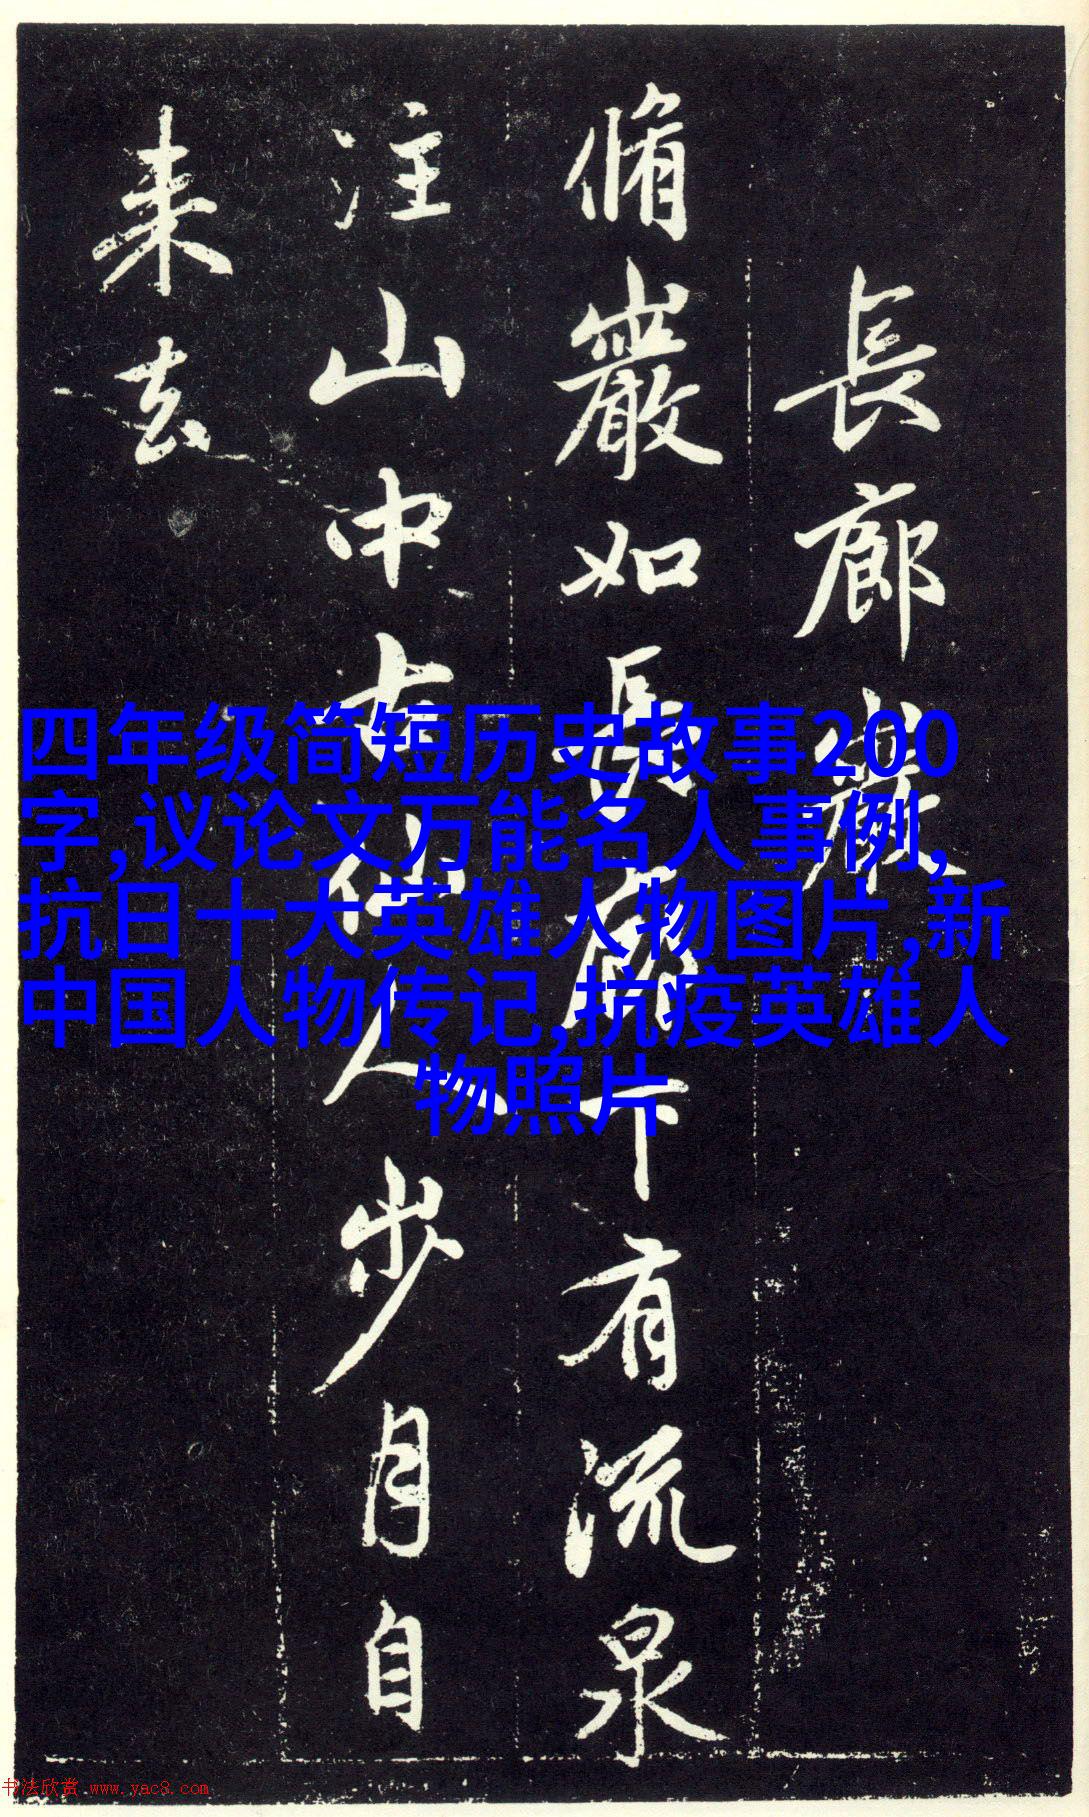 長廊巖
脩巖如長廊下有流泉
注山中古仙人步月自
来去
四年级简短历史故事200
字,议论文万能名人事例,
抗日十大英雄人物图片,新
中国人物传记,抗疫英雄人
物照片
书法欣赏 www.yac8.com